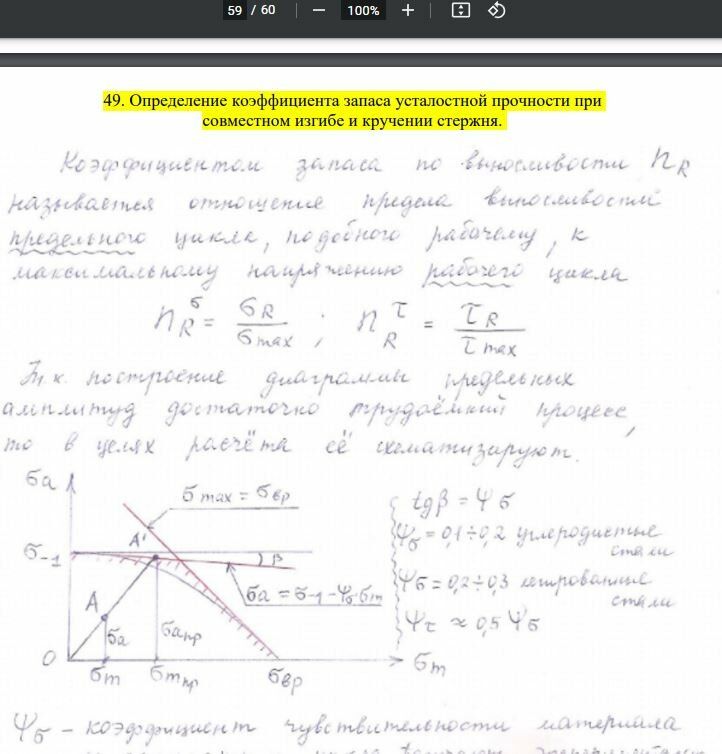 59 / 60 — 100% +
49. Определение коэффициента запаса усталостной прочности при
совместном изгибе и кручении стержня.
Коэффициентом запаса по выносливости n_R
называется отношение предела выносливости
предельного цикла, подобного рабочему, к
максимальному напряжению рабочего цикла
n_R^σ = σ_R / σ_max ; n_R^τ = τ_R / τ_max
Т.к. построение диаграммы предельных
амплитуд достаточно трудоёмкий процесс,
то в целях расчёта её схематизируют.
σa
σmax = σвр
A'
σ-1
β
σa = σ-1 - Ψσ·σm
A
σa
σaпр
0
σm
σmпр
σвр
σm
tgβ = Ψσ
Ψσ = 0,1÷0,2 углеродистые
стали
Ψσ = 0,2÷0,3 легированные
стали
Ψτ ≈ 0,5 Ψσ
Ψσ - коэффициент чувствительности материала